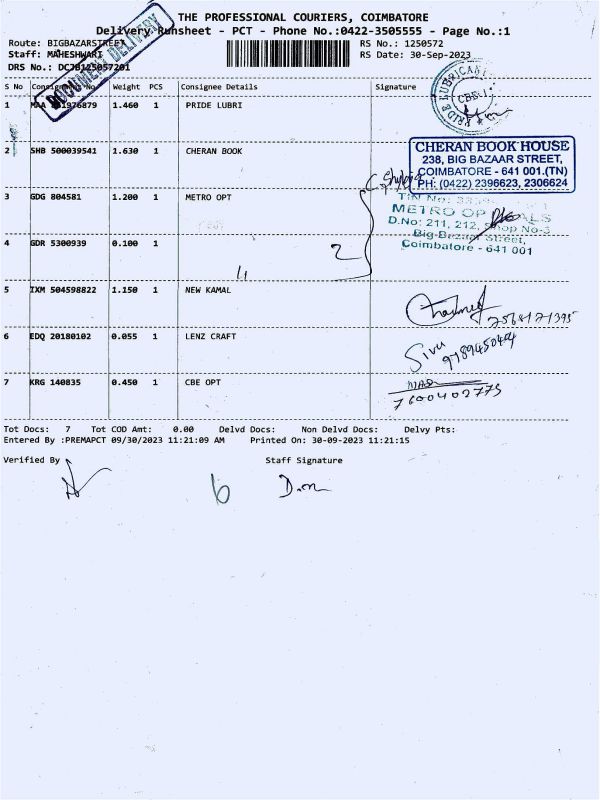 THE PROFESSIONAL COURIERS, COIMBATORE
Delivery Runsheet - PCT - Phone No.:0422-3505555 - Page No.:1
Route: BIGBAZARSTREET
RS No.: 1250572
Staff: MAHESHWARI
RS Date: 30-Sep-2023
DRS No.: DC
DOCUMENT DELIVERY
S No Consignment No Weight PCS Consignee Details Signature
1 MAA 1.460 1 PRIDE LUBRI
PRIDE LUBRICA
CBE-1
2 SHB 500039541 1.630 1 CHERAN BOOK
CHERAN BOOK HOUSE
238, BIG BAZAAR STREET,
COIMBATORE - 641 001.(TN)
PH: (0422) 2396623, 2306624
3 GDG 804581 1.200 1 METRO OPT
TIN No:
METRO OP ALS
D.No: 211, 212, Shop No-3
Big Bazaar Street,
Coimbatore - 641 001
4 GDR 5300939 0.100 1
2
5 IXM 504598822 1.150 1 NEW KAMAL
6 EDQ 20180102 0.055 1 LENZ CRAFT
Siva
7 KRG 140835 0.450 1 CBE OPT
7600402775
Tot Docs: 7 Tot COD Amt: 0.00 Delvd Docs: Non Delvd Docs: Delvy Pts:
Entered By :PREMAPCT 09/30/2023 11:21:09 AM Printed On: 30-09-2023 11:21:15
Verified By Staff Signature
6